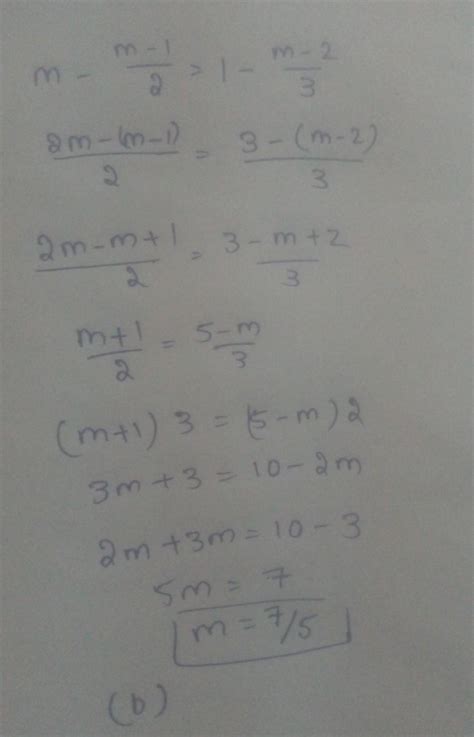 m - (m-1)/2 = 1 - (m-2)/3
(2m-(m-1))/2 = (3-(m-2))/3
(2m-m+1)/2 = (3-m+2)/3
(m+1)/2 = (5-m)/3
(m+1) 3 = (5-m) 2
3m+3 = 10-2m
2m+3m = 10-3
5m = 7
m = 7/5
(b)